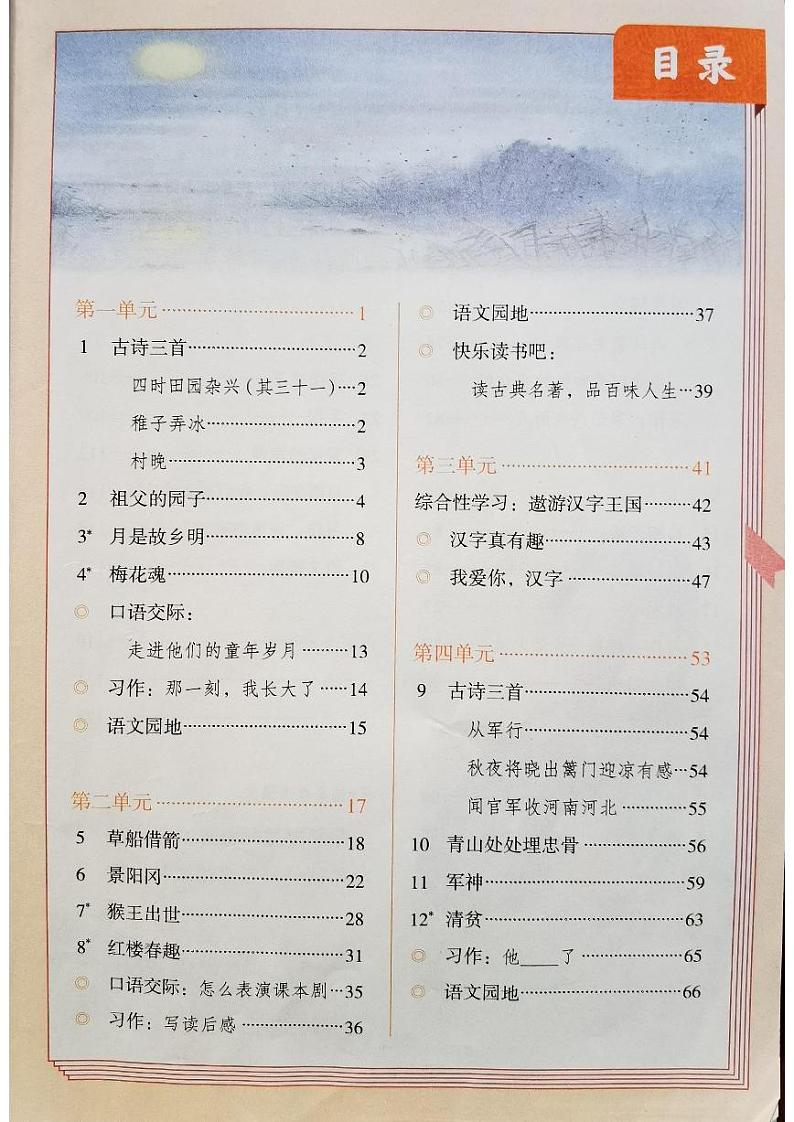 目录
第一单元……………………………1
1 古诗三首……………………………2
四时田园杂兴（其三十一）…2
稚子弄冰……………………………2
村晚……………………………3
2 祖父的园子……………………………4
3* 月是故乡明……………………………8
4* 梅花魂……………………………10
◎ 口语交际：
走进他们的童年岁月………13
◎ 习作：那一刻，我长大了……14
◎ 语文园地……………………………15
第二单元……………………………17
5 草船借箭……………………………18
6 景阳冈……………………………22
7* 猴王出世……………………………28
8* 红楼春趣……………………………31
◎ 口语交际：怎么表演课本剧…35
◎ 习作：写读后感………………36
◎ 语文园地……………………………37
◎ 快乐读书吧：
读古典名著，品百味人生…39
第三单元……………………………41
综合性学习：遨游汉字王国………42
◎ 汉字真有趣……………………………43
◎ 我爱你，汉字……………………47
第四单元……………………………53
9 古诗三首……………………………54
从军行……………………………54
秋夜将晓出篱门迎凉有感…54
闻官军收河南河北…………55
10 青山处处埋忠骨………………56
11 军神……………………………59
12* 清贫……………………………63
◎ 习作：他____了………………65
◎ 语文园地……………………………66